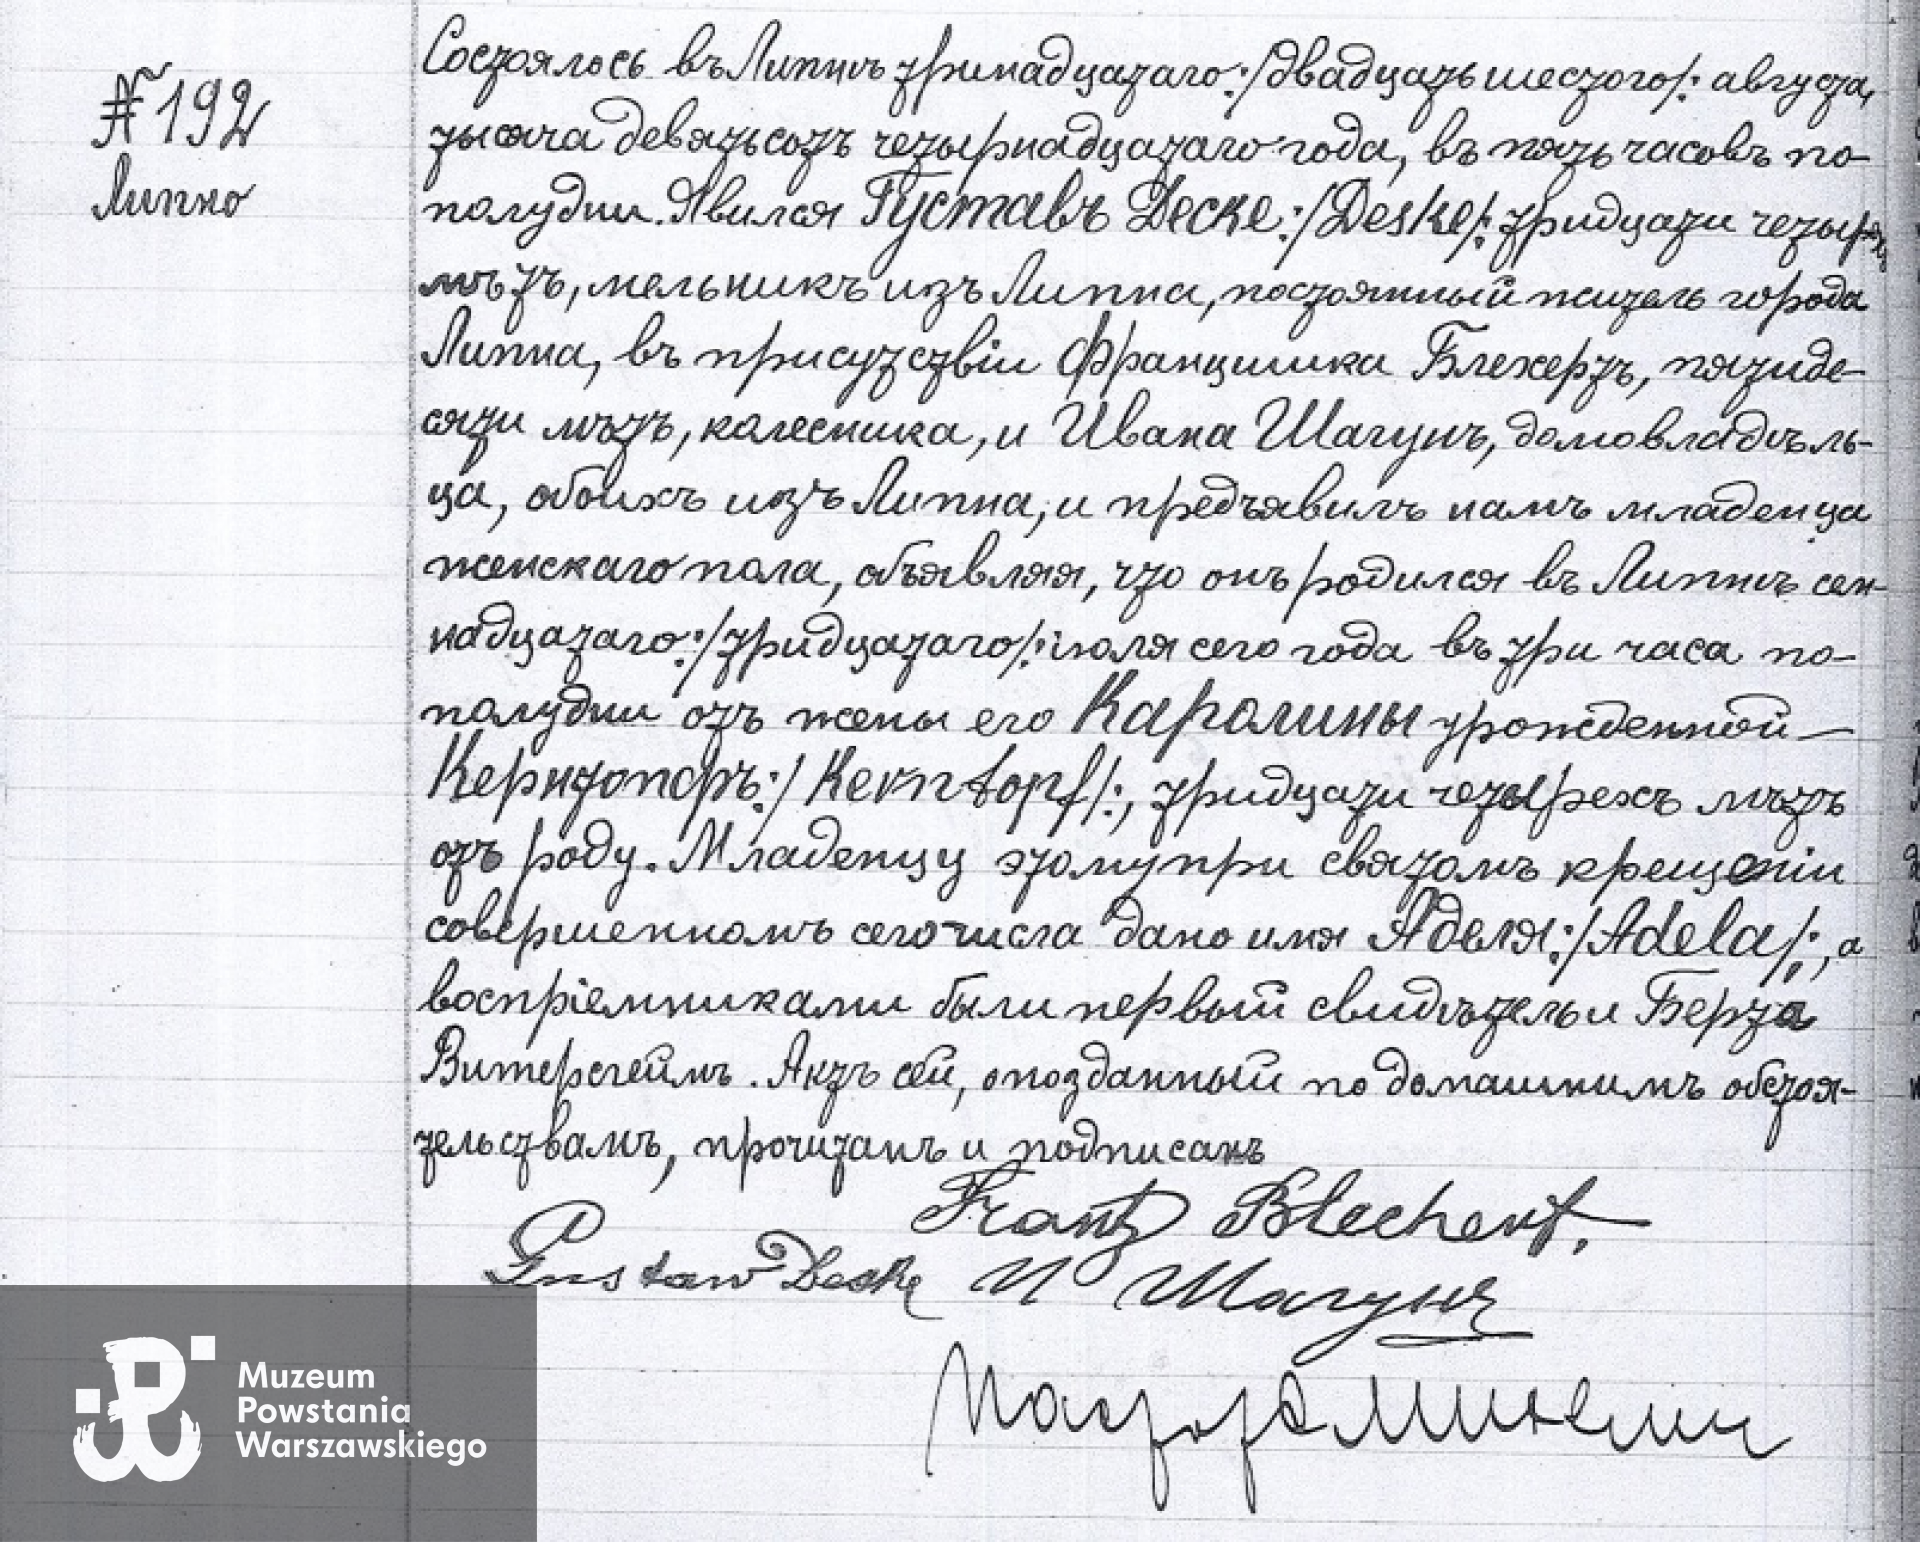 № 192
Липно
Состоялось въ Липнѣ тринадцатаго :/двадцать шестого/: августа,
тысяча девятьсотъ четырнадцатаго года, въ пять часовъ по-
полудни. Явился Густавъ Деске :/Deske/: тридцати четырехъ
лѣтъ, мельникъ изъ Липна, постоянный житель города
Липна, въ присутствіи Францишка Блехертъ, пятиде-
сяти лѣтъ, колесника, и Ивана Шагунъ, домовладѣль-
ца, обоихъ изъ Липна, и предъявилъ намъ младенца
женскаго пола, объявляя, что онъ родился въ Липнѣ сем-
надцатаго :/тридцатаго/: іюля сего года въ три часа по-
полудни отъ жены его Каролины урожденной
Кернтопфъ :/Kerntopf/:, тридцати четырехъ лѣтъ
отъ роду. Младенцу этому при святомъ крещеніи
совершенномъ сего числа дано имя Аделя :/Adela/:, а
воспріемниками были первый свидѣтель и Берта
Витерсгеймъ. Актъ сей, опозданный по домашнимъ обстоя-
тельствамъ, прочитанъ и подписанъ
Frantz Blechert.
Gustaw Deske И Шагунъ
Пасторъ
Muzeum
Powstania
Warszawskiego